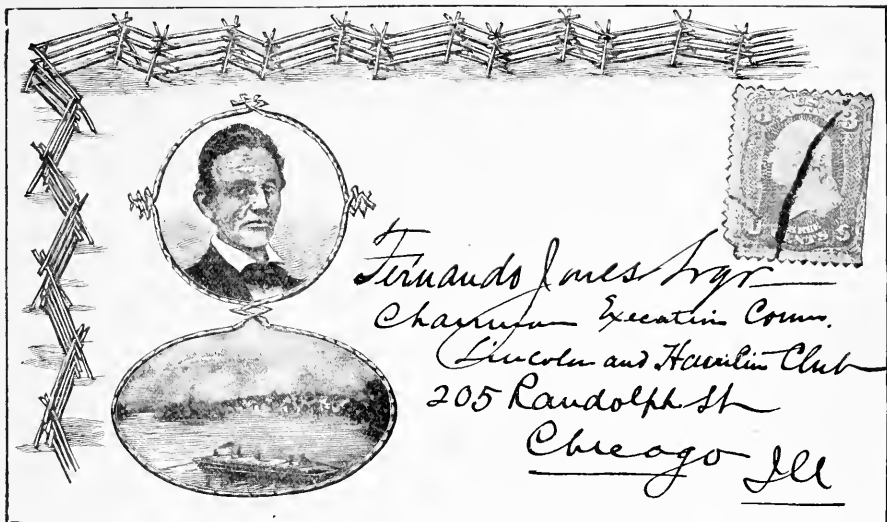 Fernando Jones Esqr
Chairman Executive Comm.
Lincoln and Hamlin Club
205 Randolph St
Chicago Ill
3 3